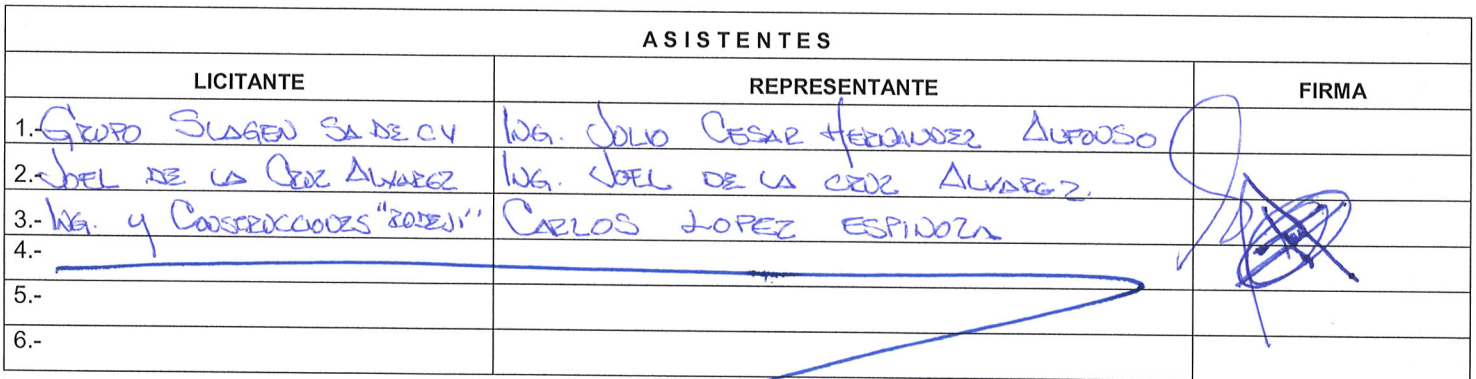 ASISTENTES
LICITANTE REPRESENTANTE FIRMA
1.- GRUPO SLAGEN SA DE CV ING. JULIO CESAR HERNANDEZ ALFONSO
2.- JOEL DE LA CRUZ ALVAREZ ING. JOEL DE LA CRUZ ALVAREZ.
3.- ING. y CONSTRUCCIONES CARLOS LOPEZ ESPINOZA
4.-
5.-
6.-